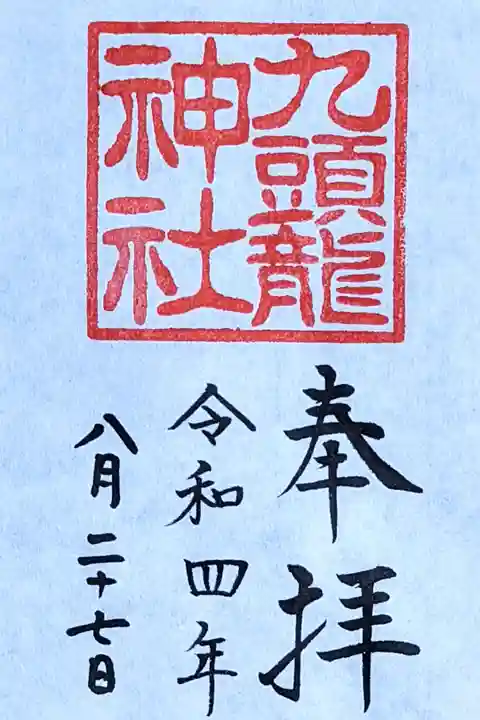 九頭龍
神社
奉拝
令和四年
八月二十七日